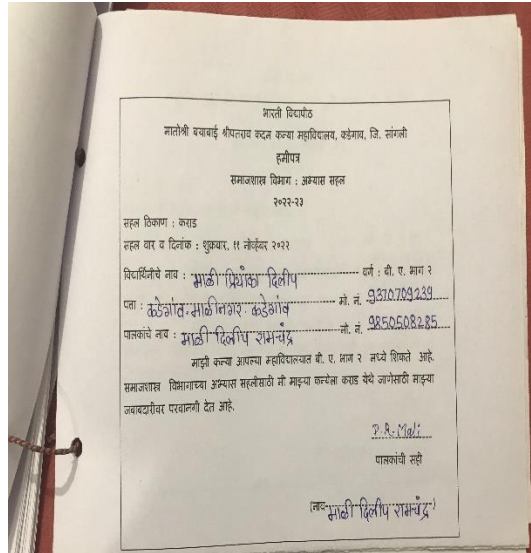 भारती विद्यापीठ
मातोश्री बयाबाई श्रीपतराव कदम कन्या महाविद्यालय, कडेगाव, जि. सांगली
हमीपत्र
समाजशास्त्र विभाग : अभ्यास सहल
२०२२-२३
सहल ठिकाण : कराड
सहल वार व दिनांक : शुक्रवार, ११ नोव्हेंबर २०२२
विद्यार्थिनीचे नाव : माळी प्रियांका दिलीप वर्ग : बी. ए. भाग २
पत्ता : कडेगांव-माळीनगर- कडेगांव मो. नं. 9370709239
पालकांचे नाव : माळी दिलीप रामचंद्र मो. नं. 9850508285
माझी कन्या आपल्या महाविद्यालयात बी. ए. भाग २ मध्ये शिकते आहे.
समाजशास्त्र विभागाच्या अभ्यास सहलीसाठी मी माझ्या कन्येला कराड येथे जाणेसाठी माझ्या
जबाबदारीवर परवानगी देत आहे.
D.R.Mali
पालकांची सही
(नाव- माळी दिलीप रामचंद्र)